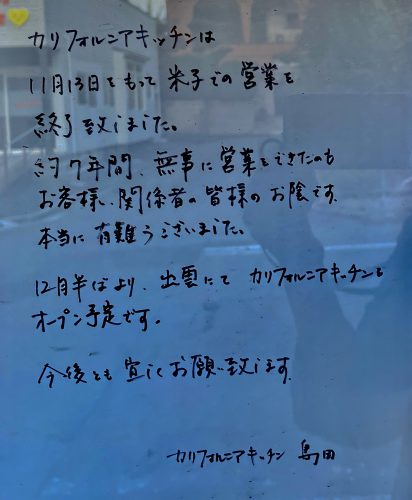 カリフォルニアキッチンは
11月13日をもって 米子での営業を
終了致しました。
約7年間、無事に営業をできたのも
お客様、関係者の皆様のお陰です。
本当に有難うございました。
12月半ばより、出雲にて カリフォルニアキッチンを
オープン予定です。
今後とも宜しくお願い致します。
カリフォルニアキッチン 島田